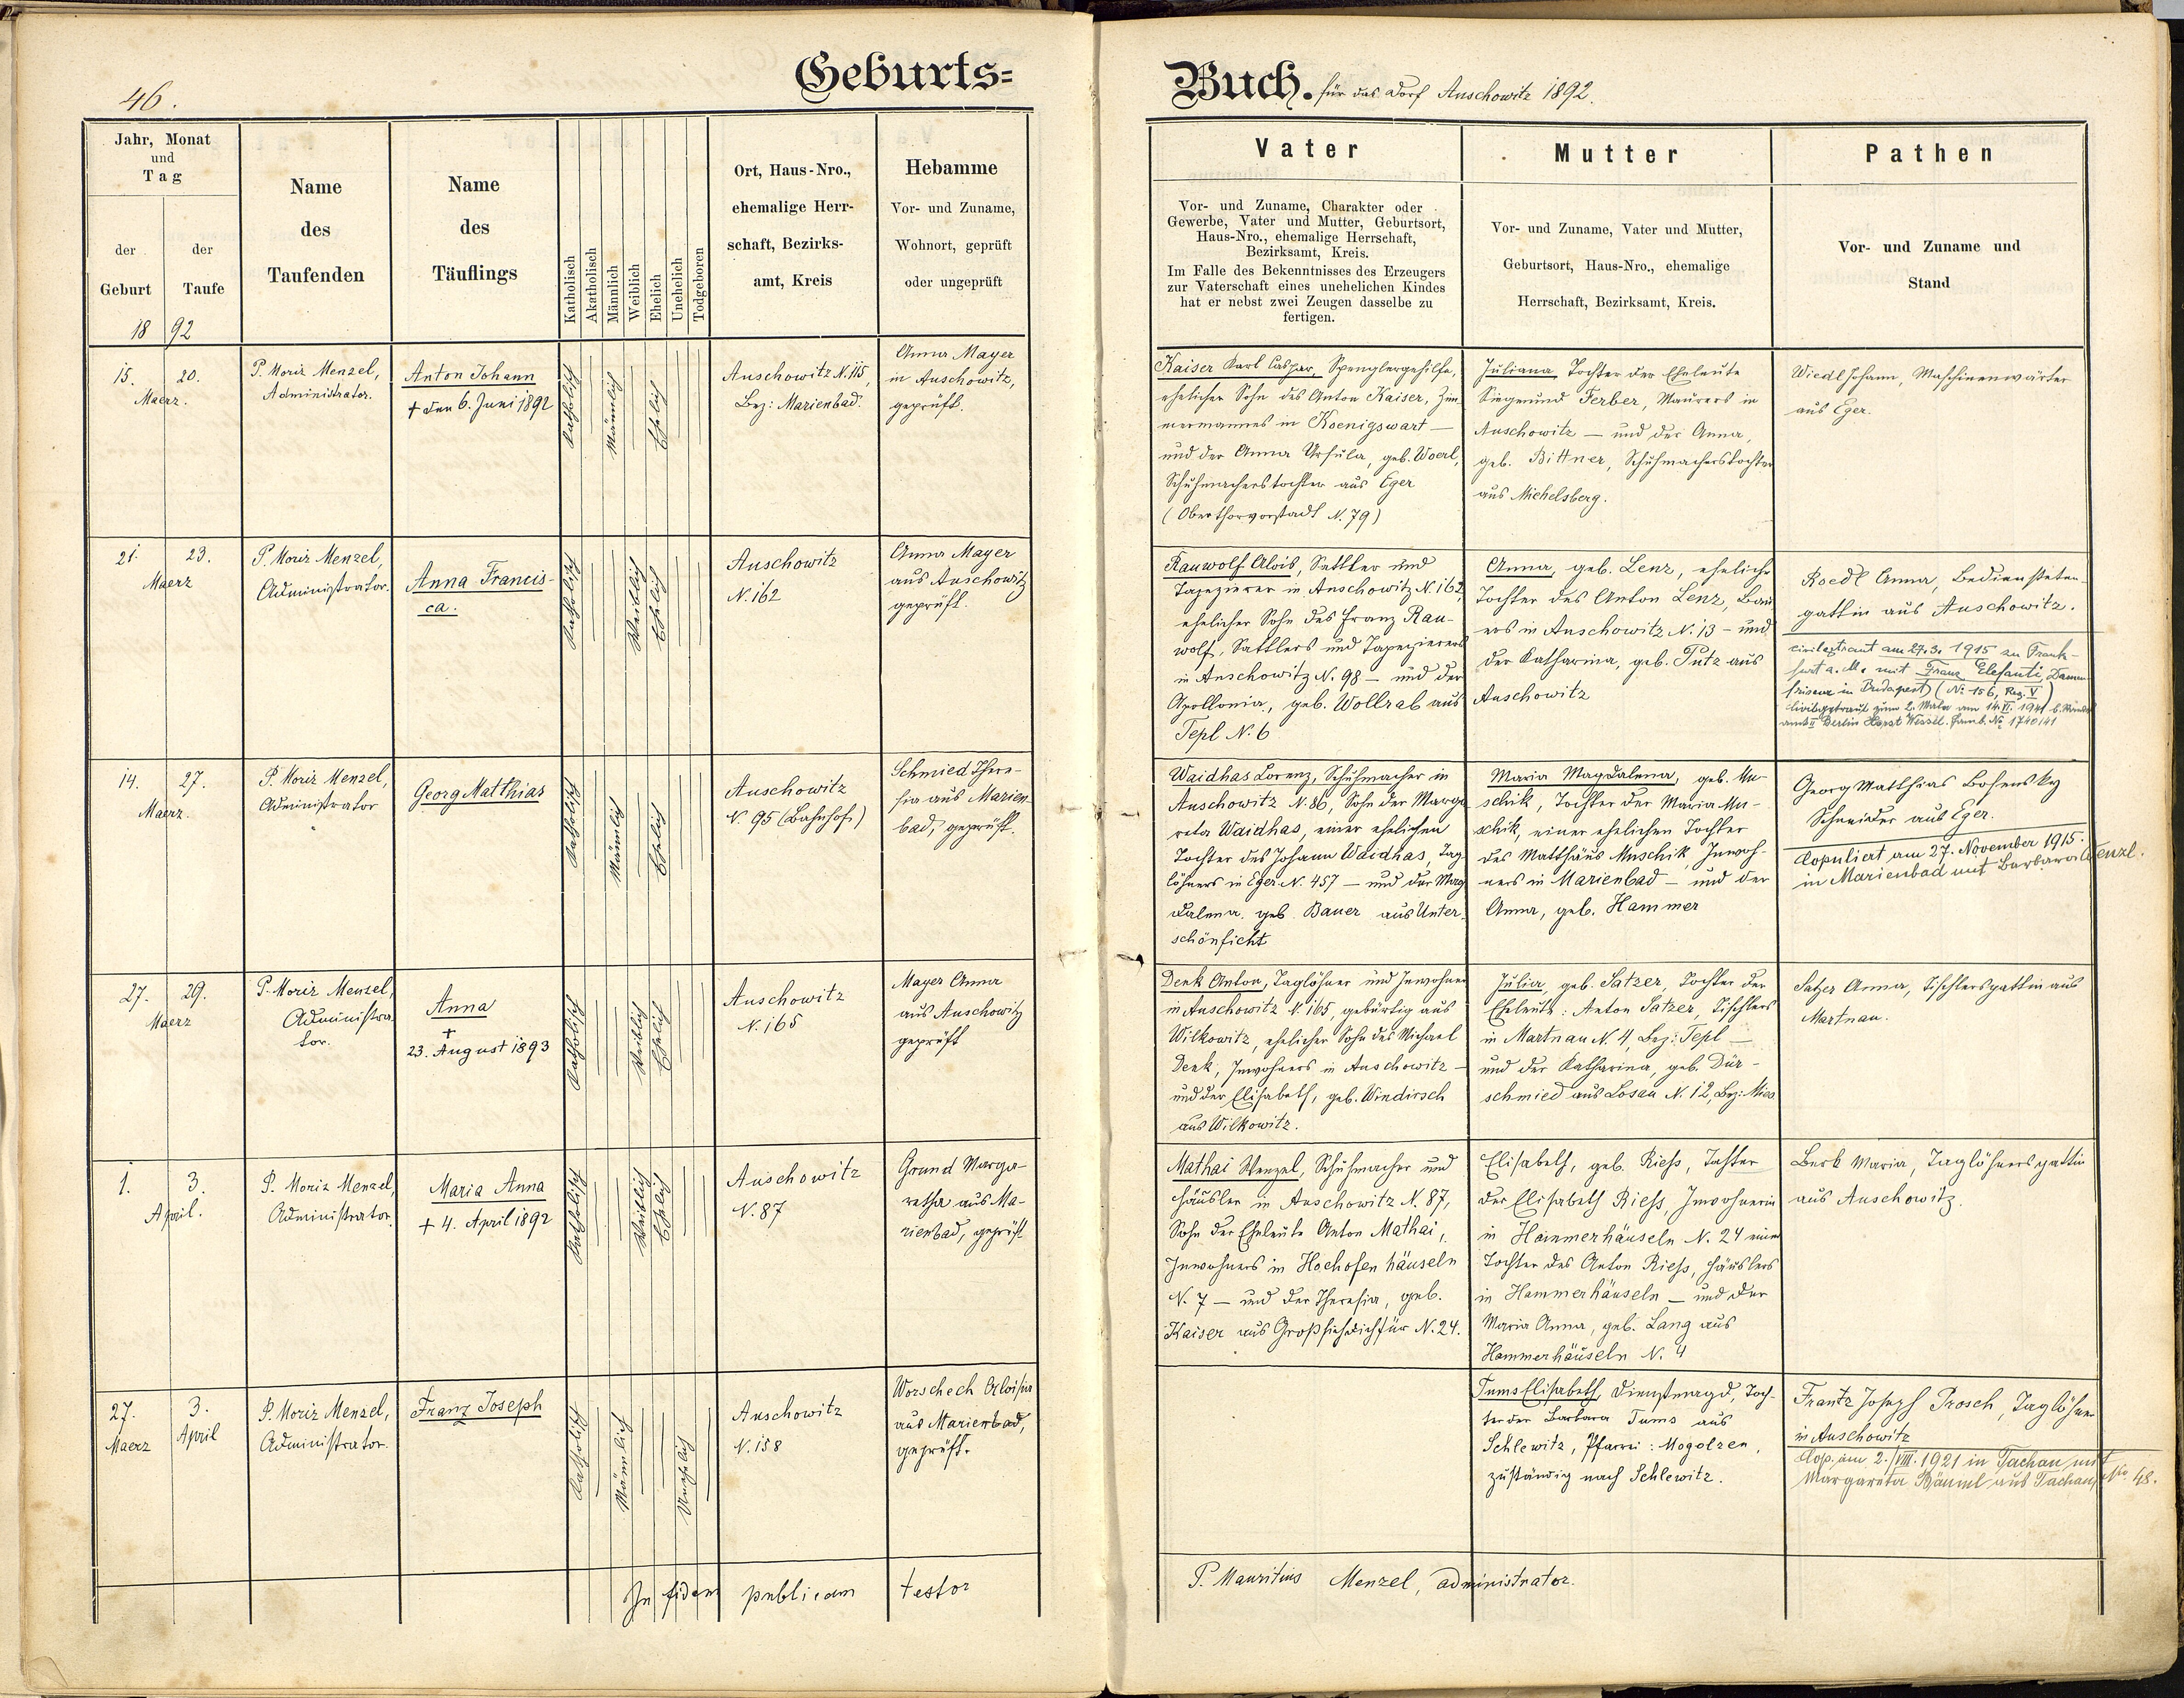 46.
Geburts=
Buch. für das Dorf Auschowitz 1892.
Jahr, Monat
und
Tag
der
Geburt
der
Taufe
18 92
Name
des
Taufenden
Name
des
Täuflings
Katholisch
Akatholisch
Männlich
Weiblich
Ehelich
Unehelich
Todgeboren
Ort, Haus-Nro.,
ehemalige Herr-
schaft, Bezirks-
amt, Kreis
Hebamme
Vor- und Zuname,
Wohnort, geprüft
oder ungeprüft
Vater
Vor- und Zuname, Charakter oder
Gewerbe, Vater und Mutter, Geburtsort,
Haus-Nro., ehemalige Herrschaft,
Bezirksamt, Kreis.
Im Falle des Bekenntnisses des Erzeugers
zur Vaterschaft eines unehelichen Kindes
hat er nebst zwei Zeugen dasselbe zu
fertigen.
Mutter
Vor- und Zuname, Vater und Mutter,
Geburtsort, Haus-Nro., ehemalige
Herrschaft, Bezirksamt, Kreis.
Pathen
Vor- und Zuname und
Stand
15. 20.
Maerz.
P. Moriz Menzel,
Administrator.
Anton Johann
† den 6. Juni 1892
Katholisch
Männlich
Ehelich
Auschowitz N. 115,
Bez: Marienbad.
Anna Mayer
in Auschowitz,
geprüft.
Kaiser Karl Caspar, Spenglergehilfe,
ehelicher Sohn des Anton Kaiser, Zim-
mermannes in Koenigswart —
und der Anna Ursula, geb. Woerl,
Schuhmacherstochter aus Eger
(Oberthorvorstadt N. 79)
Juliana Tochter der Eheleute
Siegmund Ferber, Maurers in
Auschowitz — und der Anna,
geb. Bittner, Schuhmacherstochter
aus Michelsberg.
Wiedl Johann, Maschinenwärter
aus Eger.
21. 23.
Maerz
P. Moriz Menzel,
Administrator.
Anna Francis-
ca.
Katholisch
Weiblich
Ehelich
Auschowitz
N. 162
Anna Mayer
aus Auschowitz
geprüft.
Rauwolf Alois, Sattler und
Tapezierer in Auschowitz N. 162
ehelicher Sohn des Franz Rau-
wolf, Sattlers und Tapezierers
in Auschowitz N. 98 — und der
Apollonia, geb. Wollrab aus
Tepl N. 6
Anna, geb. Lenz, eheliche
Tochter des Anton Lenz, Bau-
ers in Auschowitz N. 13 — und
der Katharina, geb. Putz aus
Auschowitz
Roedl Anna, Bediensteten-
gattin aus Auschowitz.
civilgetraut am 27.3. 1915 zu Frank-
furt a. M. mit Franz Elefanti, Damen-
friseur in Budapest (Nr. 156, Reg. V)
civilgetraut zum 2. Male am 14. VI. 1941 b. Stand-
amt Berlin Horst Wessel. Famb. No 1740/41
14. 27.
Maerz.
P. Moriz Menzel,
Administrator
Georg Matthias
Katholisch
Männlich
Ehelich
Auschowitz
N. 95 (Bahnhof)
Schmied There-
sia aus Marien-
bad, geprüft.
Waidhas Lorenz, Schuhmacher in
Auschowitz N. 86, Sohn der Marga-
reta Waidhas, einer ehelichen
Tochter des Johann Waidhas, Tag-
löhners in Eger N. 457 — und der Mag-
dalena geb. Bauer aus Unter-
schönficht
Maria Magdalena, geb. Mu-
schik, Tochter der Maria Mu-
schik, einer ehelichen Tochter
des Matthäus Muschik, Inwoh-
ners in Marienbad — und der
Anna, geb. Hammer
Georg Matthias Bohensky
Schneider aus Eger.
Copuliert am 27. November 1915.
in Marienbad mit Barbara Wenzl.
27. 29.
Maerz
P. Moriz Menzel,
Administra-
tor.
Anna
†
23. August 1893
Katholisch
Weiblich
Ehelich
Auschowitz
N. 165
Mayer Anna
aus Auschowitz
geprüft
Denk Anton, Taglöhner und Inwohner
in Auschowitz N. 165, gebürtig aus
Wilkowitz, ehelicher Sohn des Michael
Denk, Inwohners in Auschowitz —
und der Elisabeth, geb. Windirsch
aus Wilkowitz.
Julia, geb. Satzer, Tochter der
Eheleute: Anton Satzer, Tischlers
in Martnau N. 4, Bez: Tepl —
und der Katharina, geb. Dür-
schmied aus Losau N. 12, Bez: Mies
Satzer Anna, Tischlersgattin aus
Martnau.
1. 3.
April.
P. Moriz Menzel,
Administrator.
Maria Anna
† 4. April 1892
Katholisch
Weiblich
Ehelich
Auschowitz
N. 87
Grund Marga-
retha aus Ma-
rienbad, geprüft
Mathai Wenzel, Schuhmacher und
Häusler in Auschowitz N. 87,
Sohn der Eheleute Anton Mathai,
Inwohners in Hochofenhäuseln
N. 7 — und der Theresia, geb.
Kaiser aus Großsichdichfür N. 24.
Elisabeth, geb. Rieß, Tochter
der Elisabeth Rieß, Inwohnerin
in Hammerhäuseln N. 24 einer
Tochter des Anton Rieß, Häuslers
in Hammerhäuseln — und der
Maria Anna, geb. Lang aus
Hammerhäuseln N. 4
Berk Maria, Taglöhnersgattin
aus Auschowitz.
27. 3.
Maerz April
P. Moriz Menzel,
Administrator.
Franz Joseph
Katholisch
Männlich
Unehelich
Auschowitz
N. 158
Worschech Aloisia
aus Marienbad,
geprüft.
Tums Elisabeth, Dienstmagd, Toch-
ter der Barbara Tums aus
Schlewitz, Pfarrei: Mogolzen,
zuständig nach Schlewitz.
Frantz Joseph Prosch, Taglöhner
in Auschowitz
Cop. am 2./VIII. 1921 in Tachau mit
Margareta Bäuml aus Tachau, No. 48.
In fidem publicam testor
P. Mauritius Menzel, administrator.